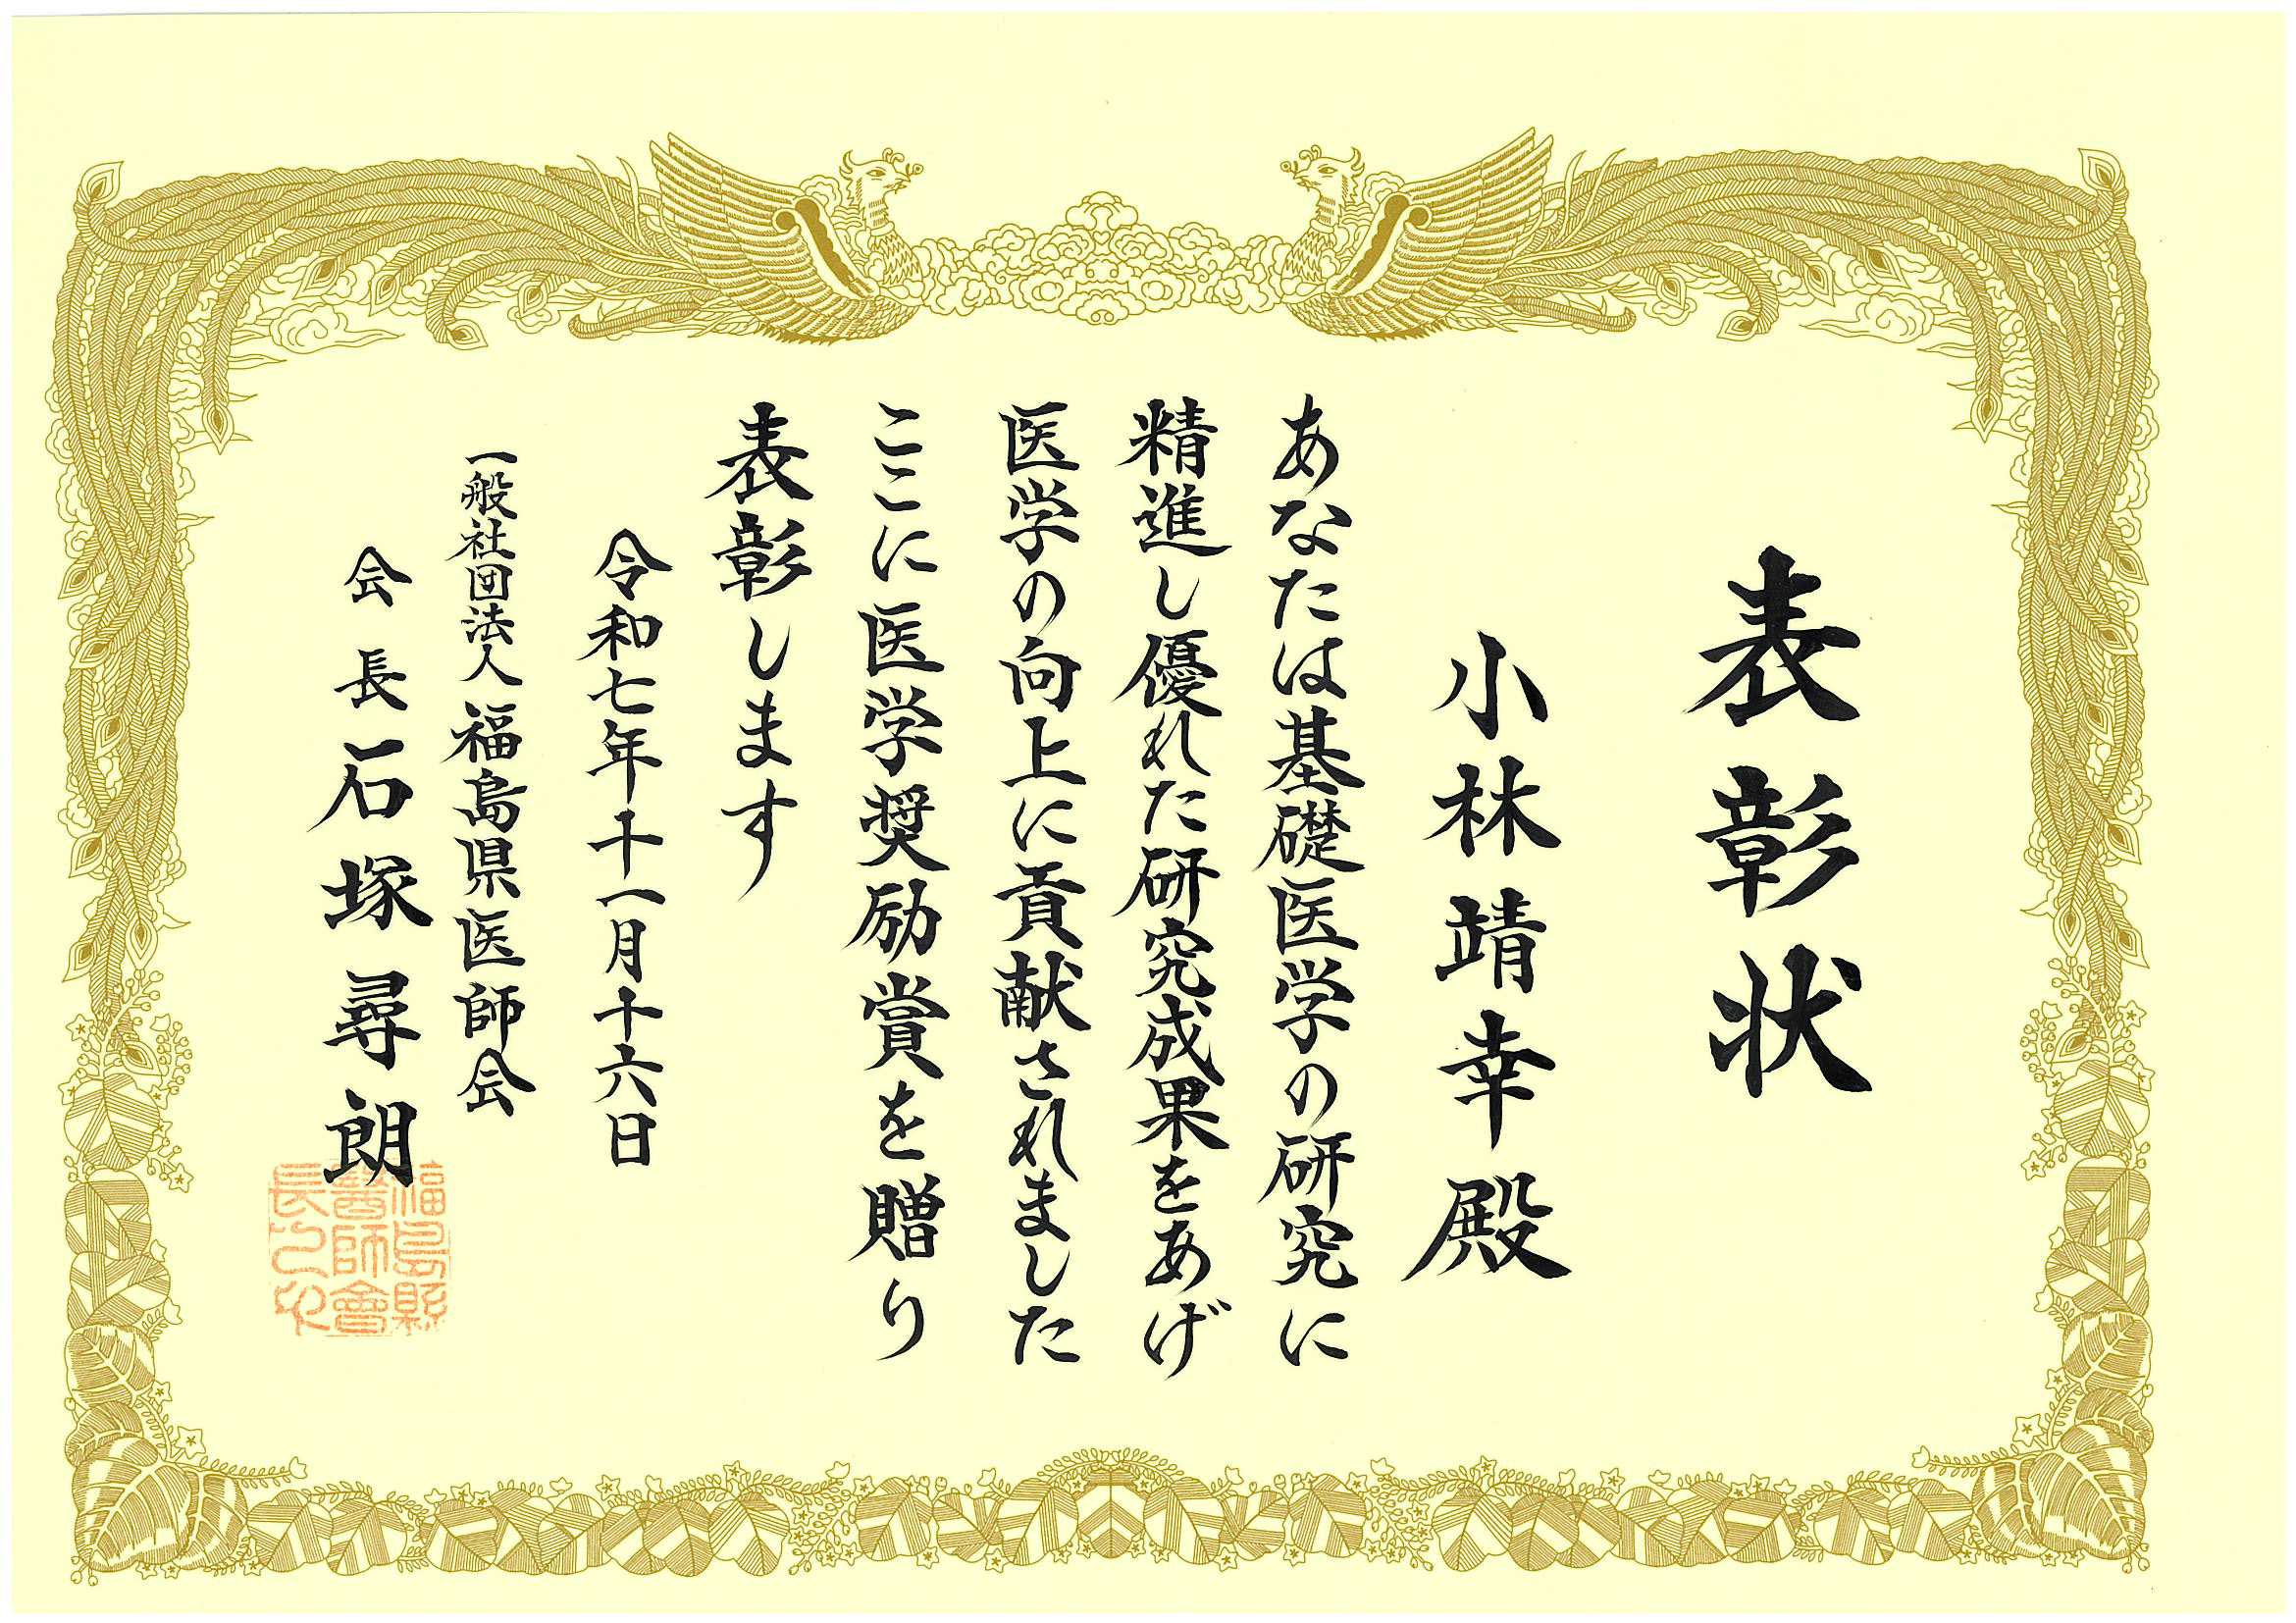 表彰状
小林靖幸殿
あなたは基礎医学の研究に
精進し優れた研究成果をあげ
医学の向上に貢献されました
ここに医学奨励賞を贈り
表彰します
令和七年十一月十六日
一般社団法人福島県医師会
会長石塚尋朗
福島縣
醫師會
長之印